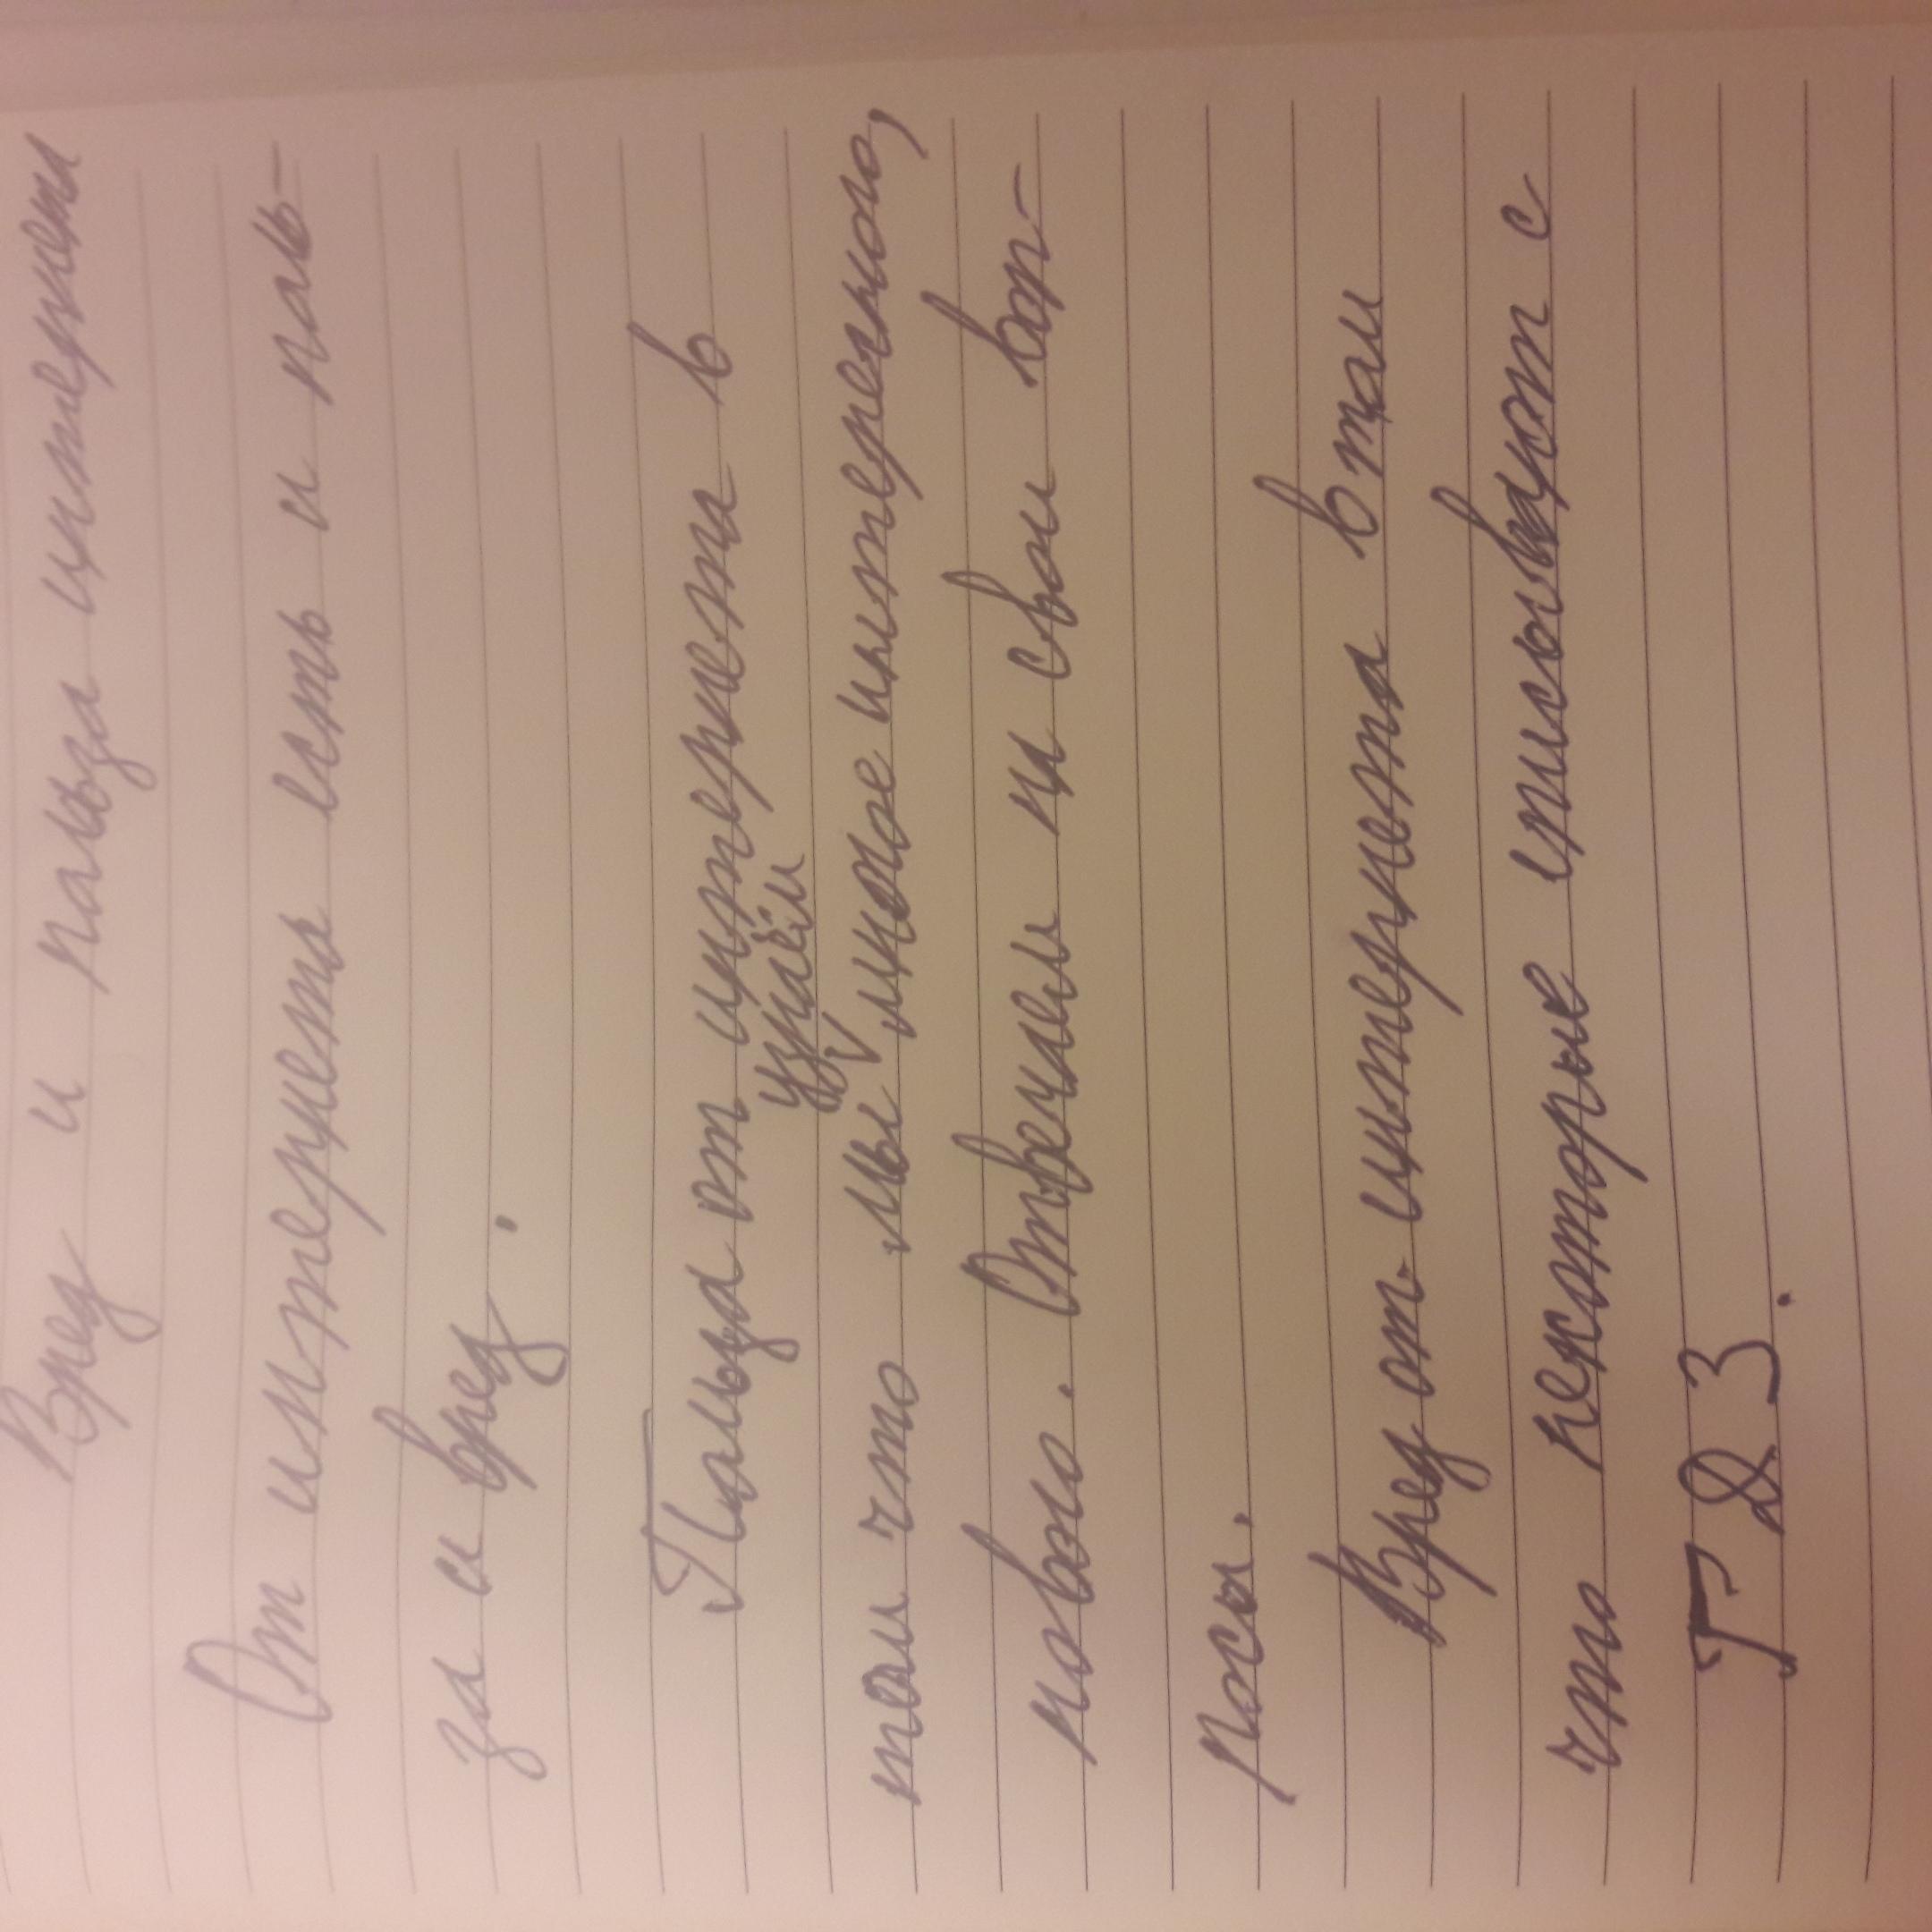 Вред и польза интернета
От интернета есть и поль-
за и вред.
Польза от интернета в
том что мы узнаём много интересного,
нового. Отвечаем на свои воп-
росы.
Вред от интернета в том
что некоторые списывают с
ГДЗ.